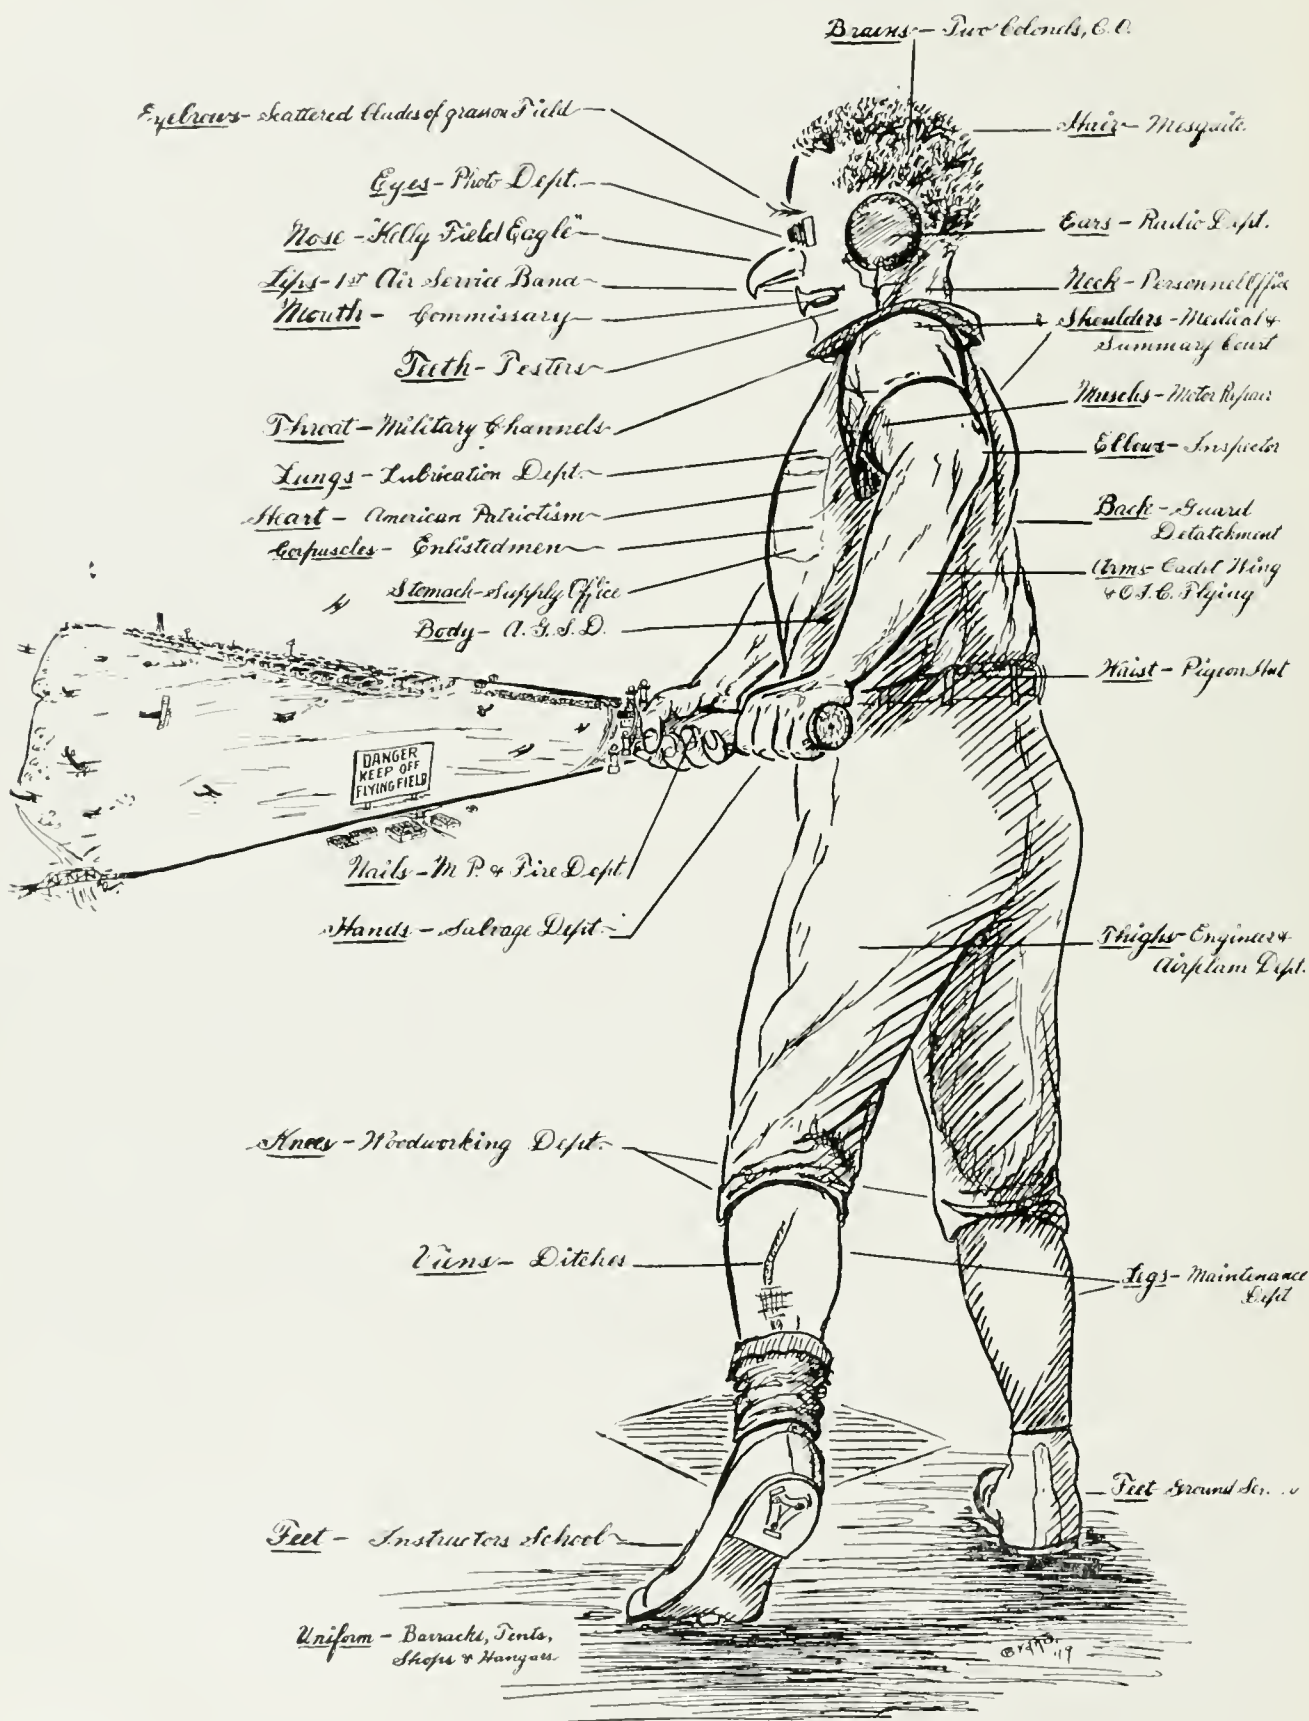 Brains - Two Colonels, C.O.
Eyebrows - Scattered blades of grass on Field
Hair - Mesquite
Eyes - Photo Dept.
Nose - "Kelly Field Eagle"
Ears - Radio Dept.
Lips - 1st Air Service Band
Neck - Personnel Office
Mouth - Commissary
Shoulders - Medical &
Summary Court
Teeth - Pesters
Muscles - Motor Repair
Throat - Military Channels
Elbows - Inspector
Lungs - Lubrication Dept.
Heart - American Patriotism
Back - Guard
Detatchment
Corpuscles - Enlistedmen
Stomach - Supply Office
Arms - Cadet Wing
& O.I.C. Flying
Body - A.G.S.D.
Waist - Pigeon Hut
DANGER
KEEP OFF
FLYING FIELD
Nails - M.P. & Fire Dept
Hands - Salvage Dept.
Thighs - Engineer &
Airplane Dept.
Knees - Woodworking Dept.
Viens - Ditches
Legs - Maintenance
Dept
Feet - Ground
Feet - Instructors School
Uniform - Barracks, Tents,
Shops & Hangars
'19